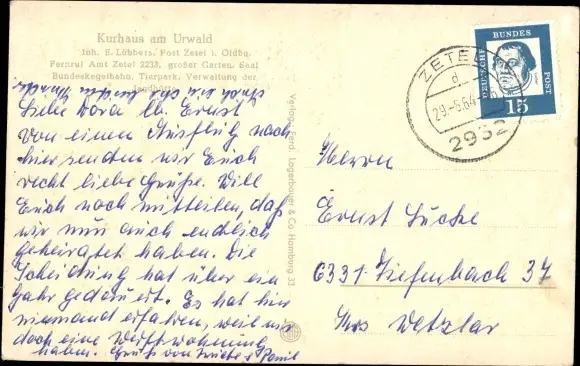 Kurhaus am Urwald
Inh. E. Lübbers, Post Zetel i. Oldbg.
Fernruf Amt Zetel 2233, großer Garten, Saal
Bundeskegelbahn, Tierpark, Verwaltung der
Jagdhütte
Liebe Dora lb. Ernst
Von einem Ausflug nach
hier senden wir Euch
recht liebe Grüße. Will
Euch noch mitteilen, daß
wir nun auch endlich
geheiratet haben. Die
Scheidung hat über ein
Jahr gedauert. Es hat hier
niemand erfahren, weil wir
doch eine Werftwohnung
haben. Gruß von
Verlag Ferd. Lagerbauer & Co Hamburg 33
ZETEL
d
29.-5.64
2932
DEUTSCHE BUNDESPOST
15
Herrn
Ernst Lücke
6331 Tiefenbach 37
Krs Wetzlar